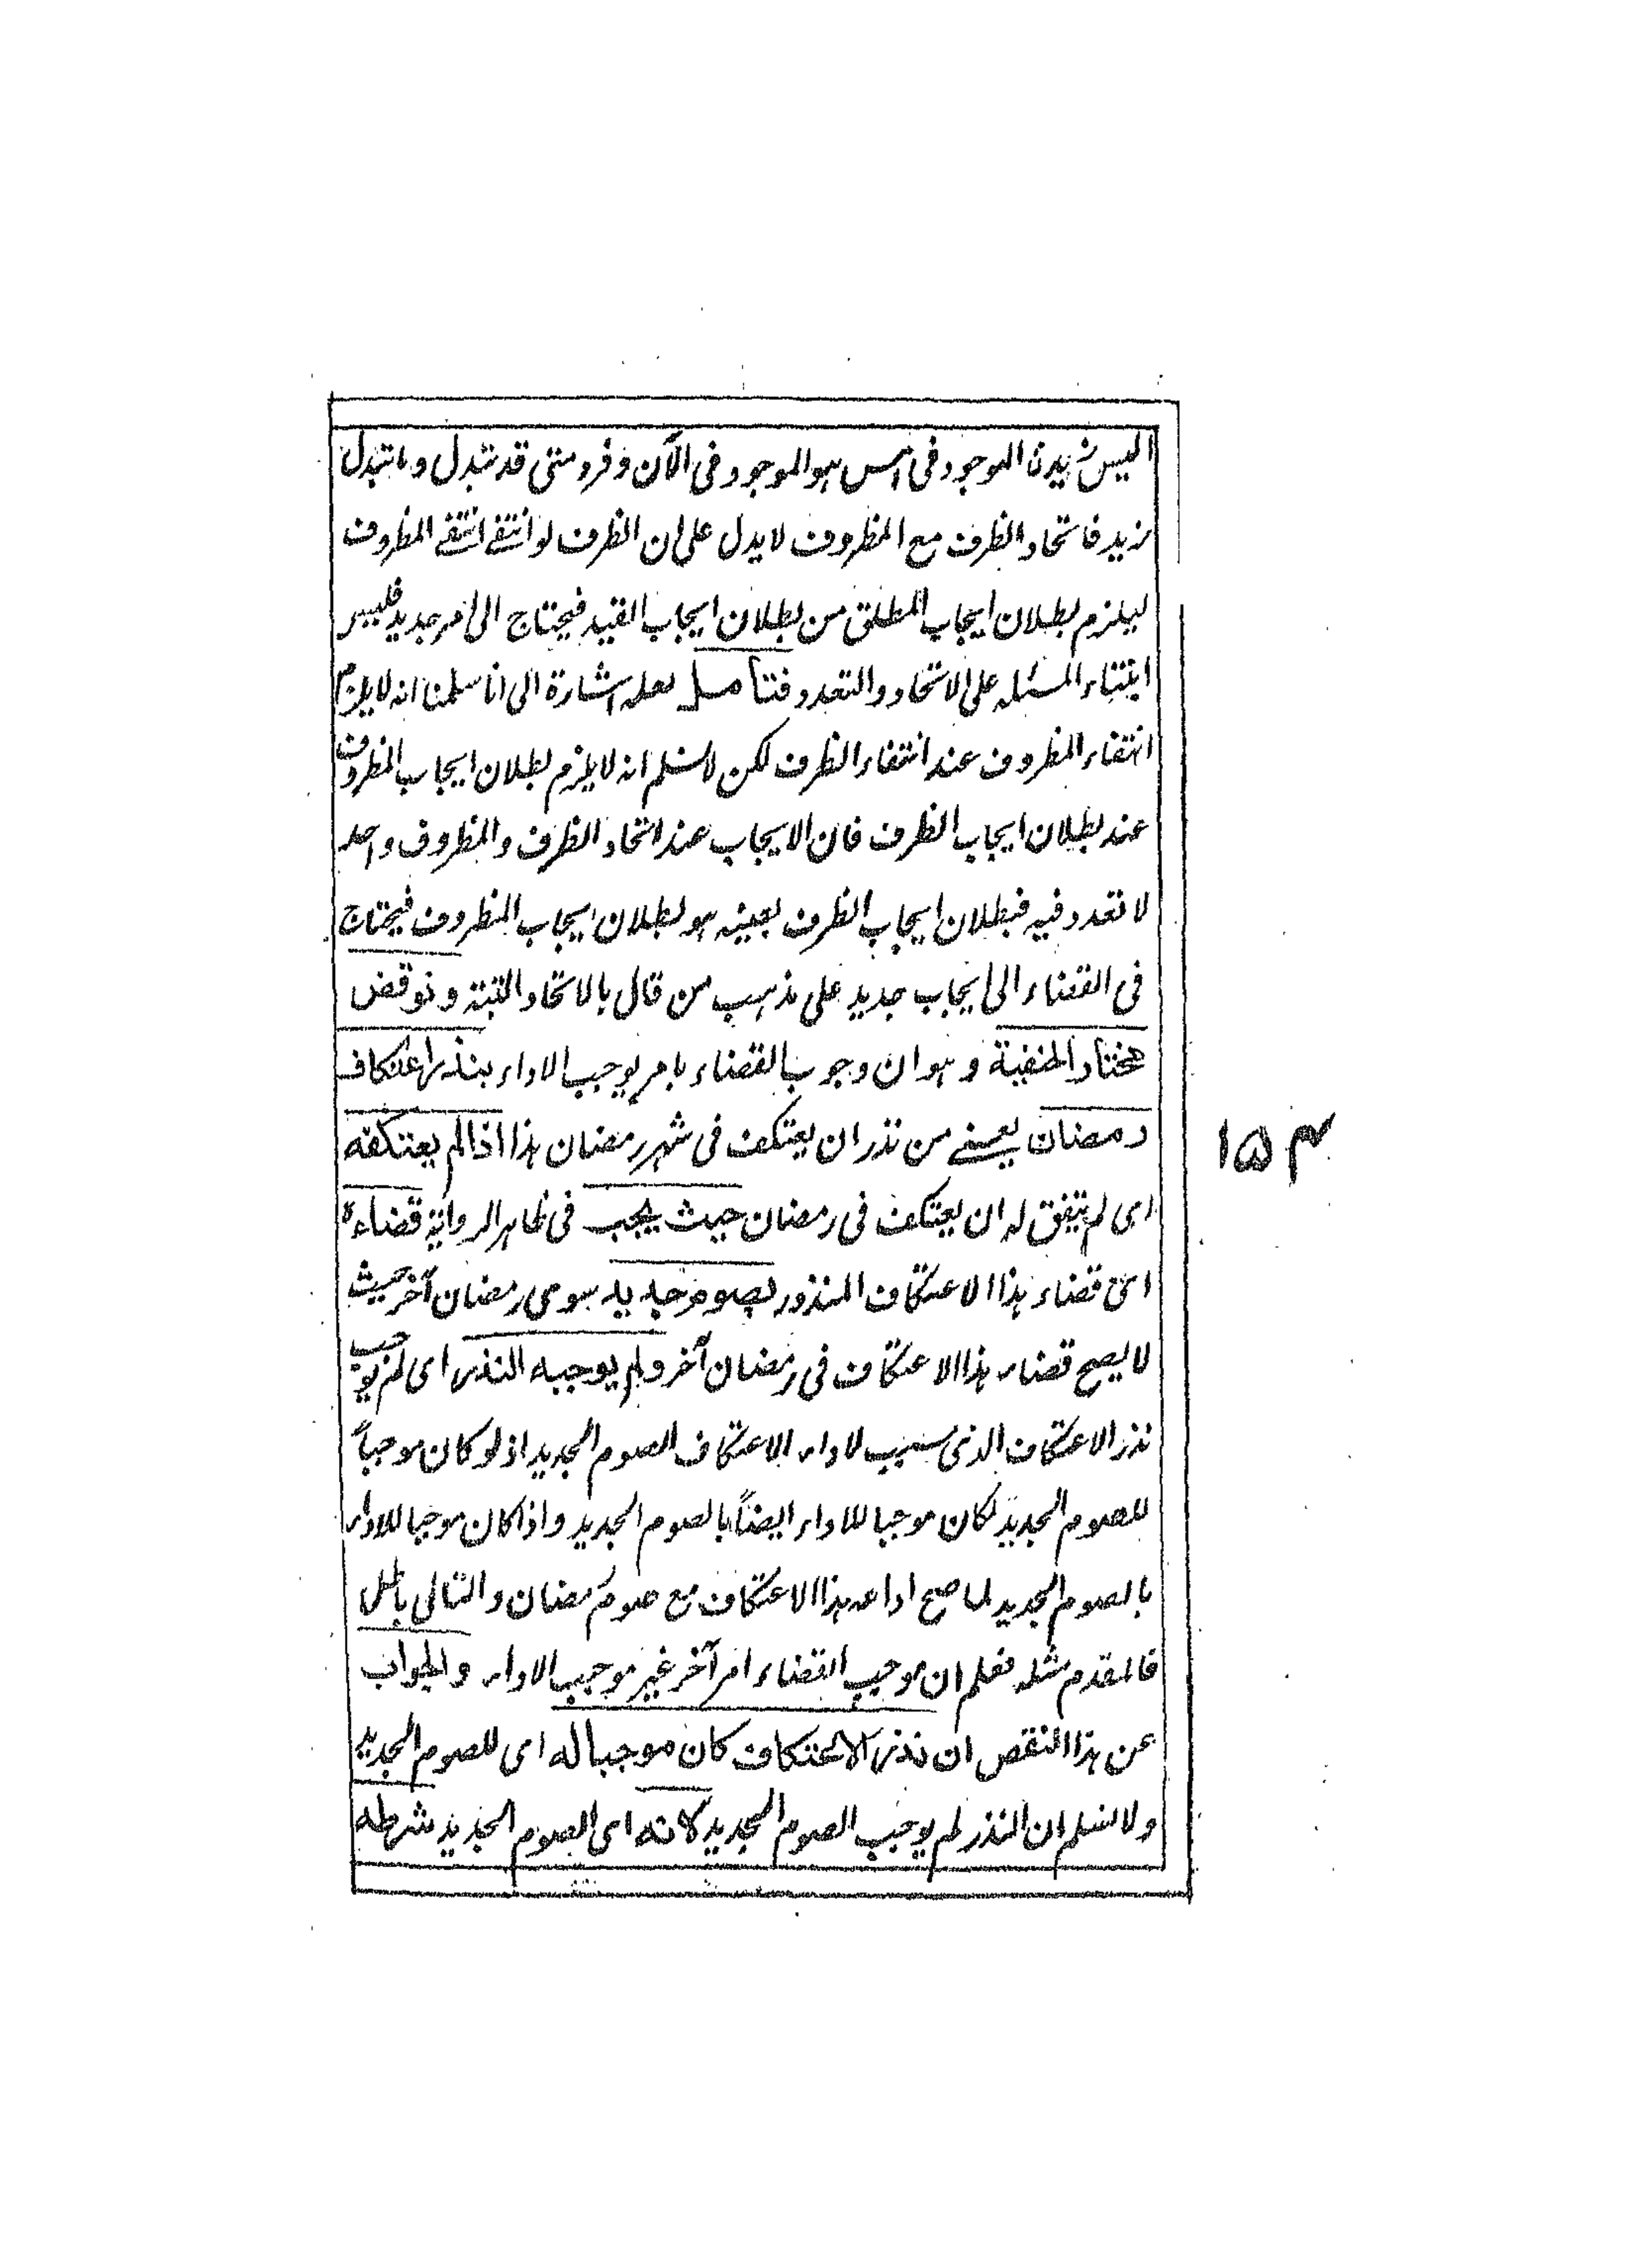 اليس زيدن الموجود فى امس هو الموجود فى الآن وفرد متى قد تبدل وما تبدل
زيد فاتحاد الظرف مع المظروف لا يدل على ان الظرف لو انتفے انتفے المظروف
ليلزم بطلان ايجاب المطلق من بطلان ايجاب القيد فيحتاج الى امر جديد فليس
ابتناء المسئله على الاتحاد والتعدد فتأمل لعله اشارة الى انا سلمنا انه لا يلزم
انتفاء المظروف عند انتفاء الظرف لكن لا نسلم انه لا يلزم بطلان ايجاب المظروف
عند بطلان ايجاب الظرف فان الايجاب عند اتحاد الظرف والمظروف واحد
لا تعدد فيه فبطلان ايجاب الظرف بعينه هو بطلان ايجاب المظروف فيحتاج
فى القضاء الى ايجاب جديد على مذهب من قال بالاتحاد البتة ونوقض
مختار الحنفية وهو ان وجوب القضاء بامر يوجب الاداء بنذر اعتكاف
رمضان يعنے من نذر ان يعتكف فى شهر رمضان هذا اذا لم يعتكفه
اى لم يتفق له ان يعتكف فى رمضان حيث يجب فى ظاهر الرواية قضاءه
اى قضاء هذا الاعتكاف المنذور بصوم جديد سوى رمضان آخر حيث
لا يصح قضاء هذا الاعتكاف فى رمضان آخر ولم يوجبه النذر اى لم يوجب
نذر الاعتكاف الذى سبب لاداء الاعتكاف الصوم الجديد اذ لو كان موجباً
للصوم الجديد لكان موجبا للاداء ايضاً بالصوم الجديد واذا كان موجبا للاداء
بالصوم الجديد لما صح اداءه هذا الاعتكاف مع صوم رمضان والتالى باطل
فالمقدم مثله فعلم ان موجب القضاء امر آخر غير موجب الاداء والجواب
عن هذا النقض ان نذر الاعتكاف كان موجبا له اى للصوم الجديد
ولا نسلم ان النذر لم يوجب الصوم الجديد لانه اى الصوم الجديد شرطه
۱۵۴